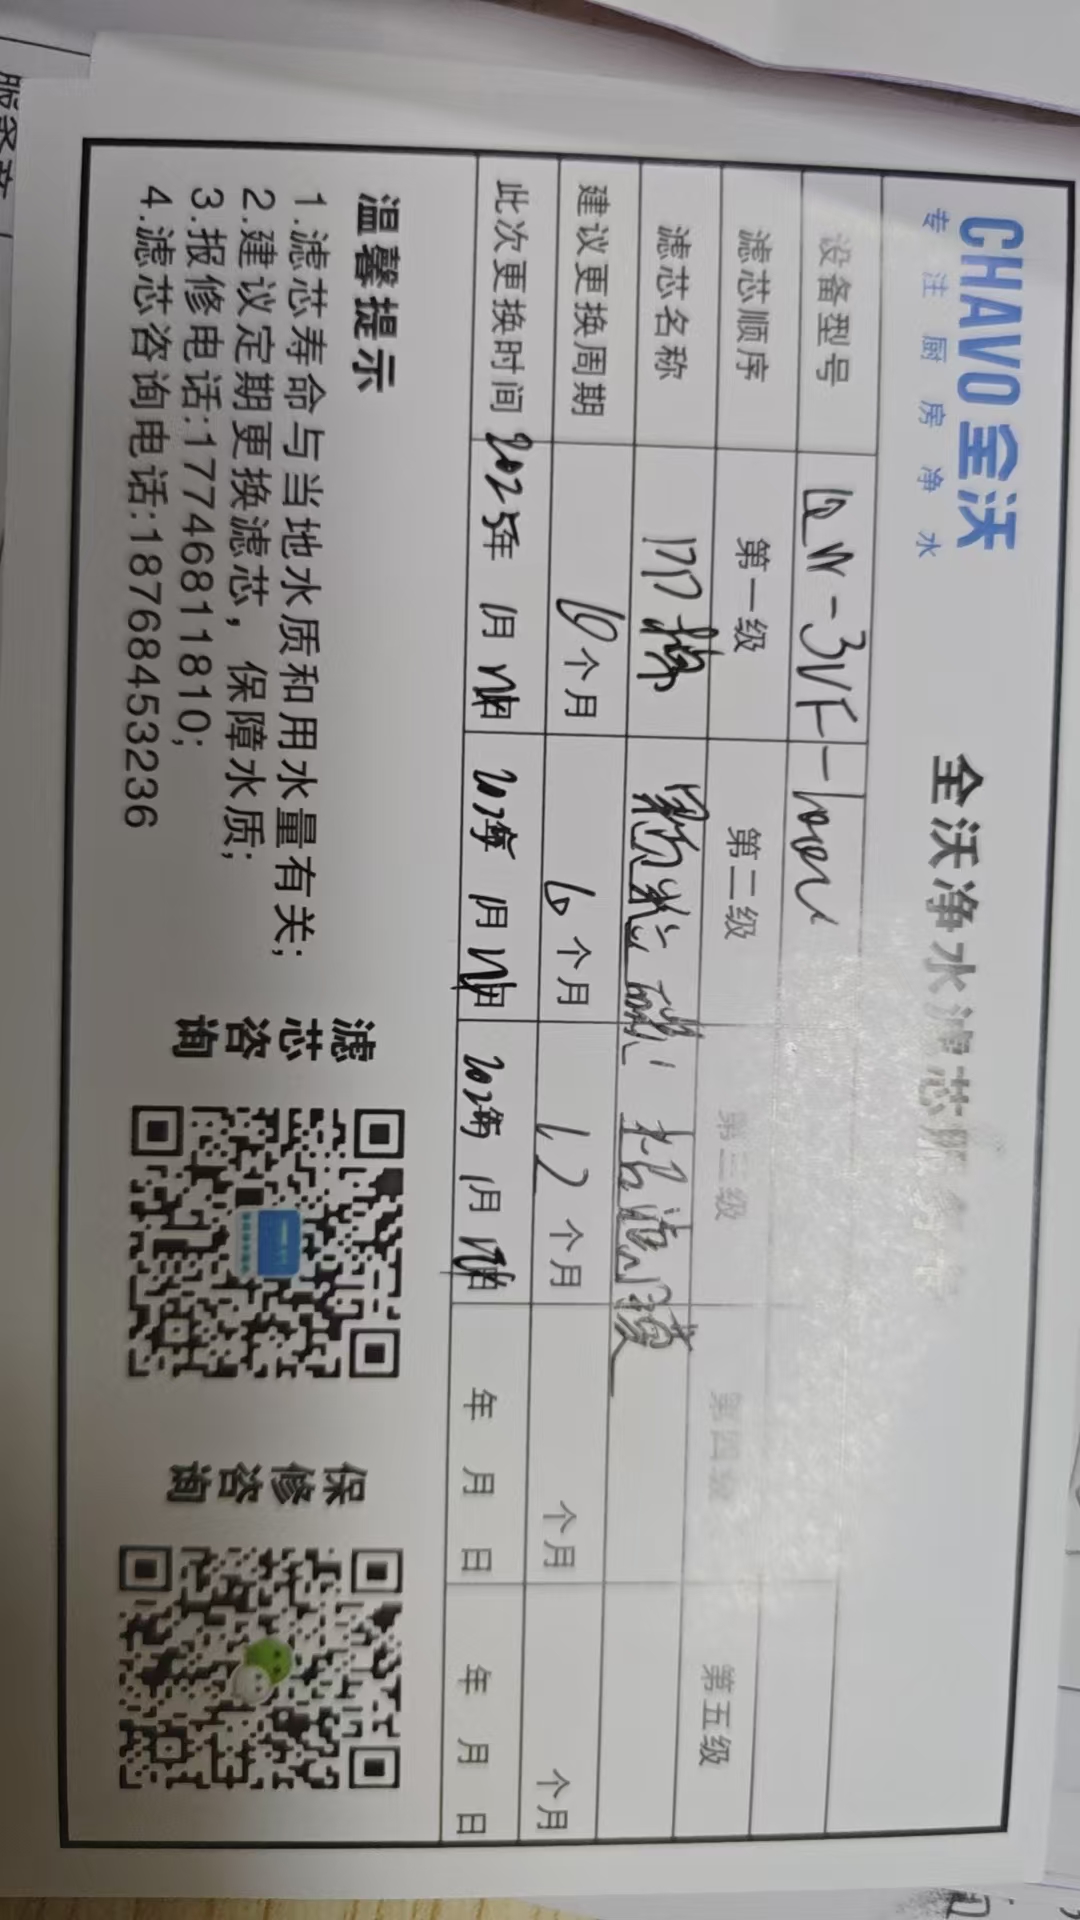 CHAVO全沃
专注厨房净水
全沃净水滤芯服务卡
设备型号 QW-3VF-
滤芯顺序 第一级 第二级 第三级 第四级 第五级
滤芯名称 PP棉 颗粒碳 超滤膜
建议更换周期 6个月 6个月 12个月 个月 个月
此次更换时间 2025年 月 日 年 月 日 年 月 日 年 月 日 年 月 日
温馨提示
1.滤芯寿命与当地水质和用水量有关;
2.建议定期更换滤芯，保障水质;
3.报修电话:17746811810;
4.滤芯咨询电话:18768453236
滤芯咨询
保修咨询
服务产